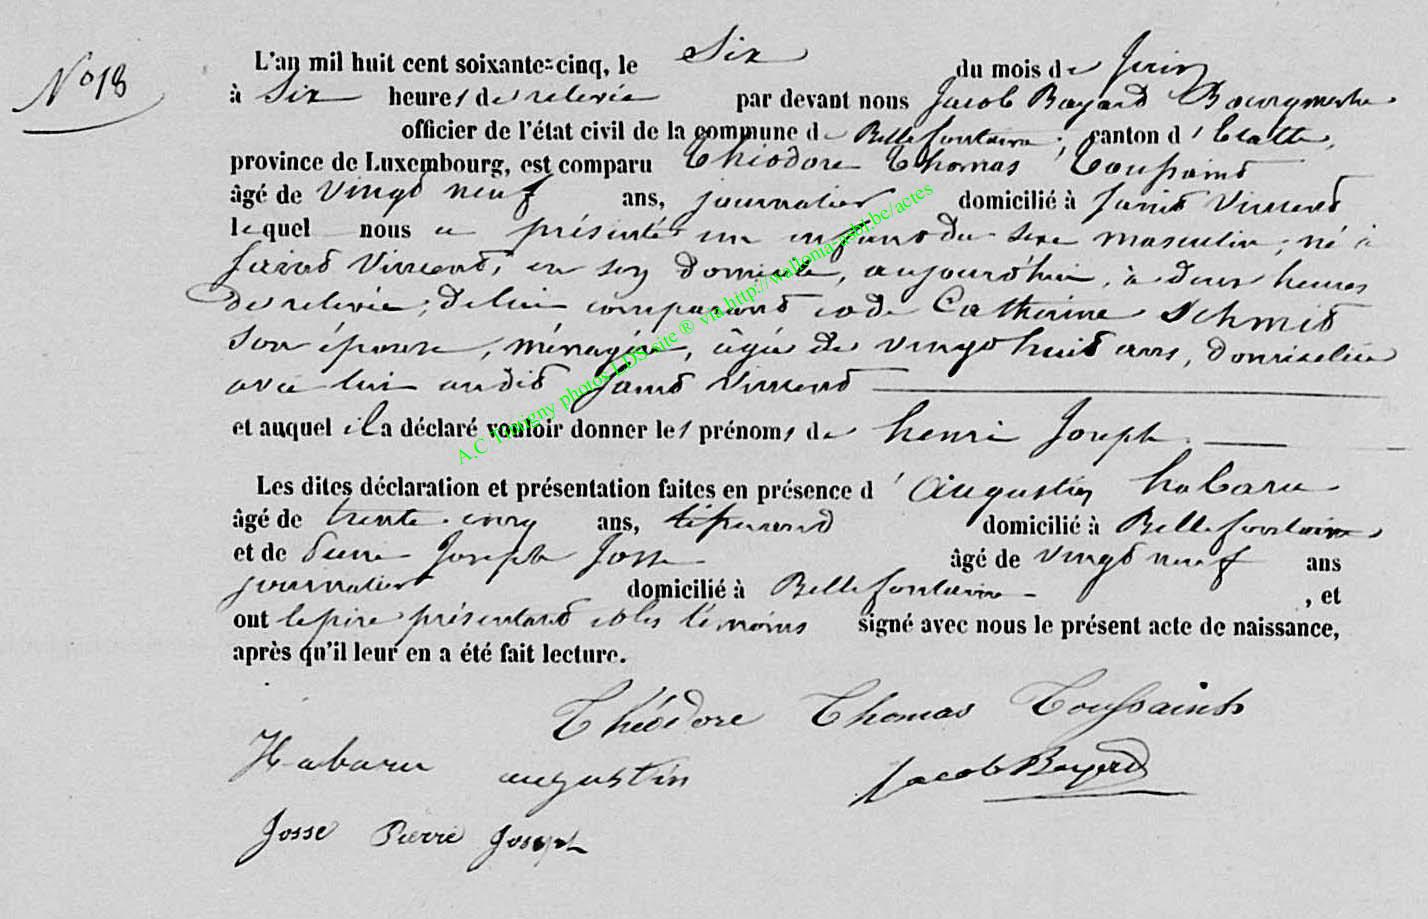 No 18
L'an mil huit cent soixante-cinq, le Six du mois de Juin
à Six heures de relevée par devant nous Jacob Bayard Bourgmestre
officier de l'état civil de la commune de Bellefontaine, canton d'Etalle,
province de Luxembourg, est comparu Théodore Thomas Toussaint
âgé de vingt neuf ans, journalier domicilié à Saint Vincent
lequel nous a présenté un enfant du sexe masculin, né à
Saint Vincent, en son domicile, aujourd'hui, à deux heures
de relevée, de lui comparant et de Catherine Schmit
son épouse, ménagère, âgée de vingt huit ans, domiciliée
avec lui audit Saint Vincent
et auquel il a déclaré vouloir donner les prénoms de henri Joseph.
Les dites déclaration et présentation faites en présence d'Augustin habaru
âgé de trente-cinq ans, tisserand domicilié à Bellefontaine
et de Pierre Joseph Josse âgé de vingt neuf ans
journalier domicilié à Bellefontaine , et
ont le père présentant et les témoins signé avec nous le présent acte de naissance,
après qu'il leur en a été fait lecture.
Théodore Thomas Toussaint
Habaru augustin Jacob Bayard
Josse Pierre Joseph
A.C Tintigny photos LDS site ® via http://wallonia-asbl.be/actes